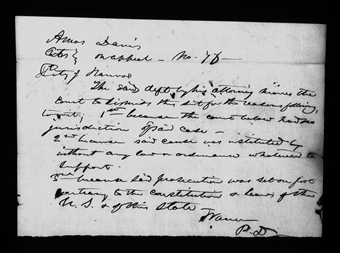 Amos Davis
on appeal - No. 76
City of
The said deft by his attorney moves the
court to dismiss this suit for the reasons following
to wit: 1st because the court below had no
jurisdiction of said case -
2nd because said cause was instituted by
without any law or ordinance whatever to
support.
3rd because said prosecution was set on foot
contrary to the constitution & laws of the
U.S. & of this State
P.D.